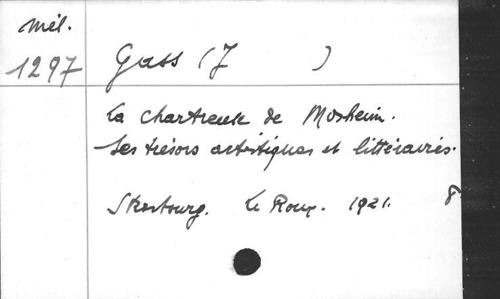 Mél.
1297
Gass (J )
La Chartreuse de Mosheim.
Ses trésors artistiques et littéraires.
Strasbourg. Le Roux. 1921. 8